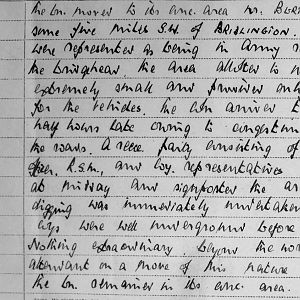 the bn. moved to its conc. area nr. BURT
some five miles S.W. of BRIDLINGTON.
were represented as being in Army r
the bridgehead the area allotted to
extremely small and provided only
for the vehicles. The bn arrived
half hours late owing to congestion
the roads. A recce party consisting of
R.S.M., and Coy. representatives
at midday and signposted the ar
digging was immediately undertaken
Coys were well underground before
Nothing extraordinary beyond the nor
attendant on a move of this nature
the bn. remained in its conc. area.